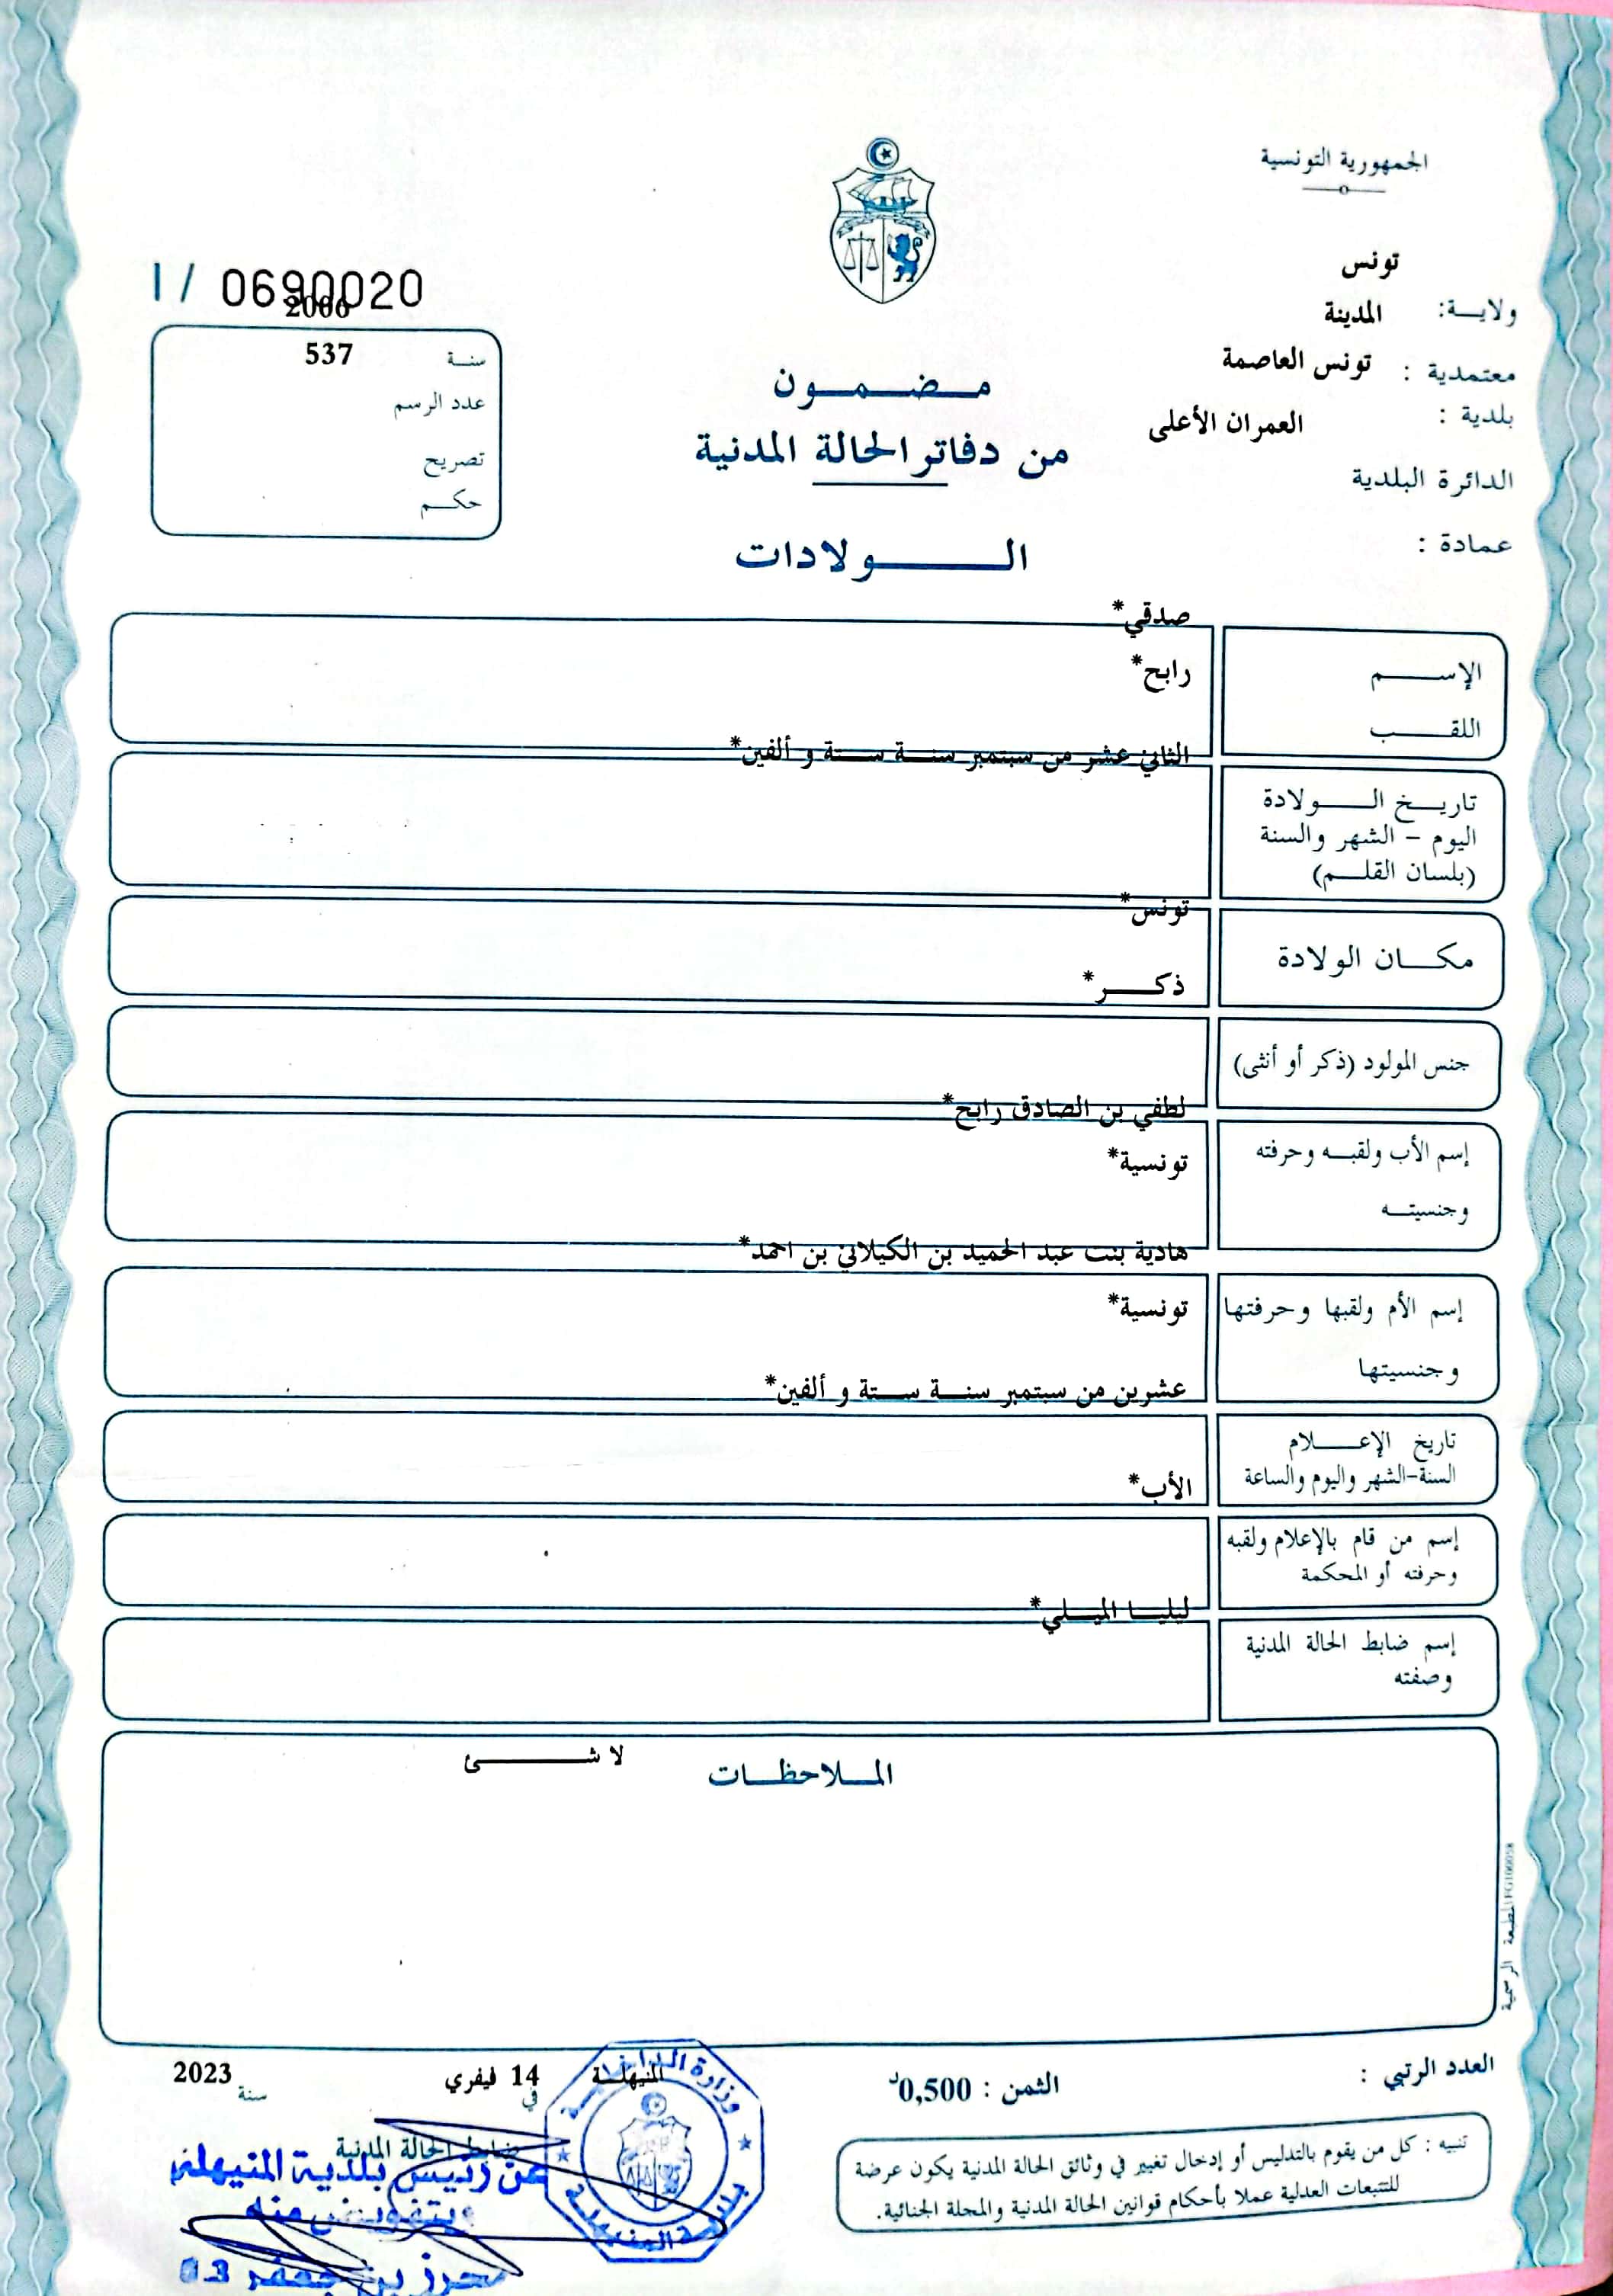 الجمهورية التونسية
تونس
ولايـــة:
المدينة
معتمدية :
تونس العاصمة
بلدية :
العمران الأعلى
الدائرة البلدية
عمادة :
I / 0690020
2006
سنـة
537
عدد الرسم
تصريح
حكـــم
مـــضـــمـــون
من دفاتر الحالة المدنية
الـــــولادات
صدقي*
الإســـــم
رابح*
اللقـــــب
الثاني عشر من سبتمبر سنـــة ستـة و ألفين*
تاريــخ الـــــولادة
اليوم – الشهر والسنة
(بلسان القلـــم)
تونس*
مكـــان الولادة
ذكـــــر*
جنس المولود (ذكر أو أنثى)
لطفي بن الصادق رابح*
إسم الأب ولقبــه وحرفته
تونسية*
وجنسيتــه
هادية بنت عبد الحميد بن الكيلاني بن احمد*
إسم الأم ولقبها وحرفتها
تونسية*
وجنسيتها
عشرين من سبتمبر سنـــة ستـة و ألفين*
تاريخ الإعـــــلام
السنة-الشهر واليوم والساعة
الأب*
إسم من قام بالإعلام ولقبه
وحرفته أو المحكمة
ليليـــا الميـــلي*
إسم ضابط الحالة المدنية
وصفته
لا شـــــــئ
المـــلاحظـــات
المطبعة الرسمية
العدد الرتبي :
الثمن : 0,500د
المنيهلـــة
في
14 فيفري
سنة
2023
تنبيه : كل من يقوم بالتدليس أو إدخال تغيير في وثائق الحالة المدنية يكون عرضة
للتتبعات العدلية عملا بأحكام قوانين الحالة المدنية والمجلة الجنائية.
ضابط الحالة المدنية
عن رئيس بلدية المنيهلة
وبتفويض منه
محرز بن جعفر 03
وزارة الداخلية
بلدية المنيهلة